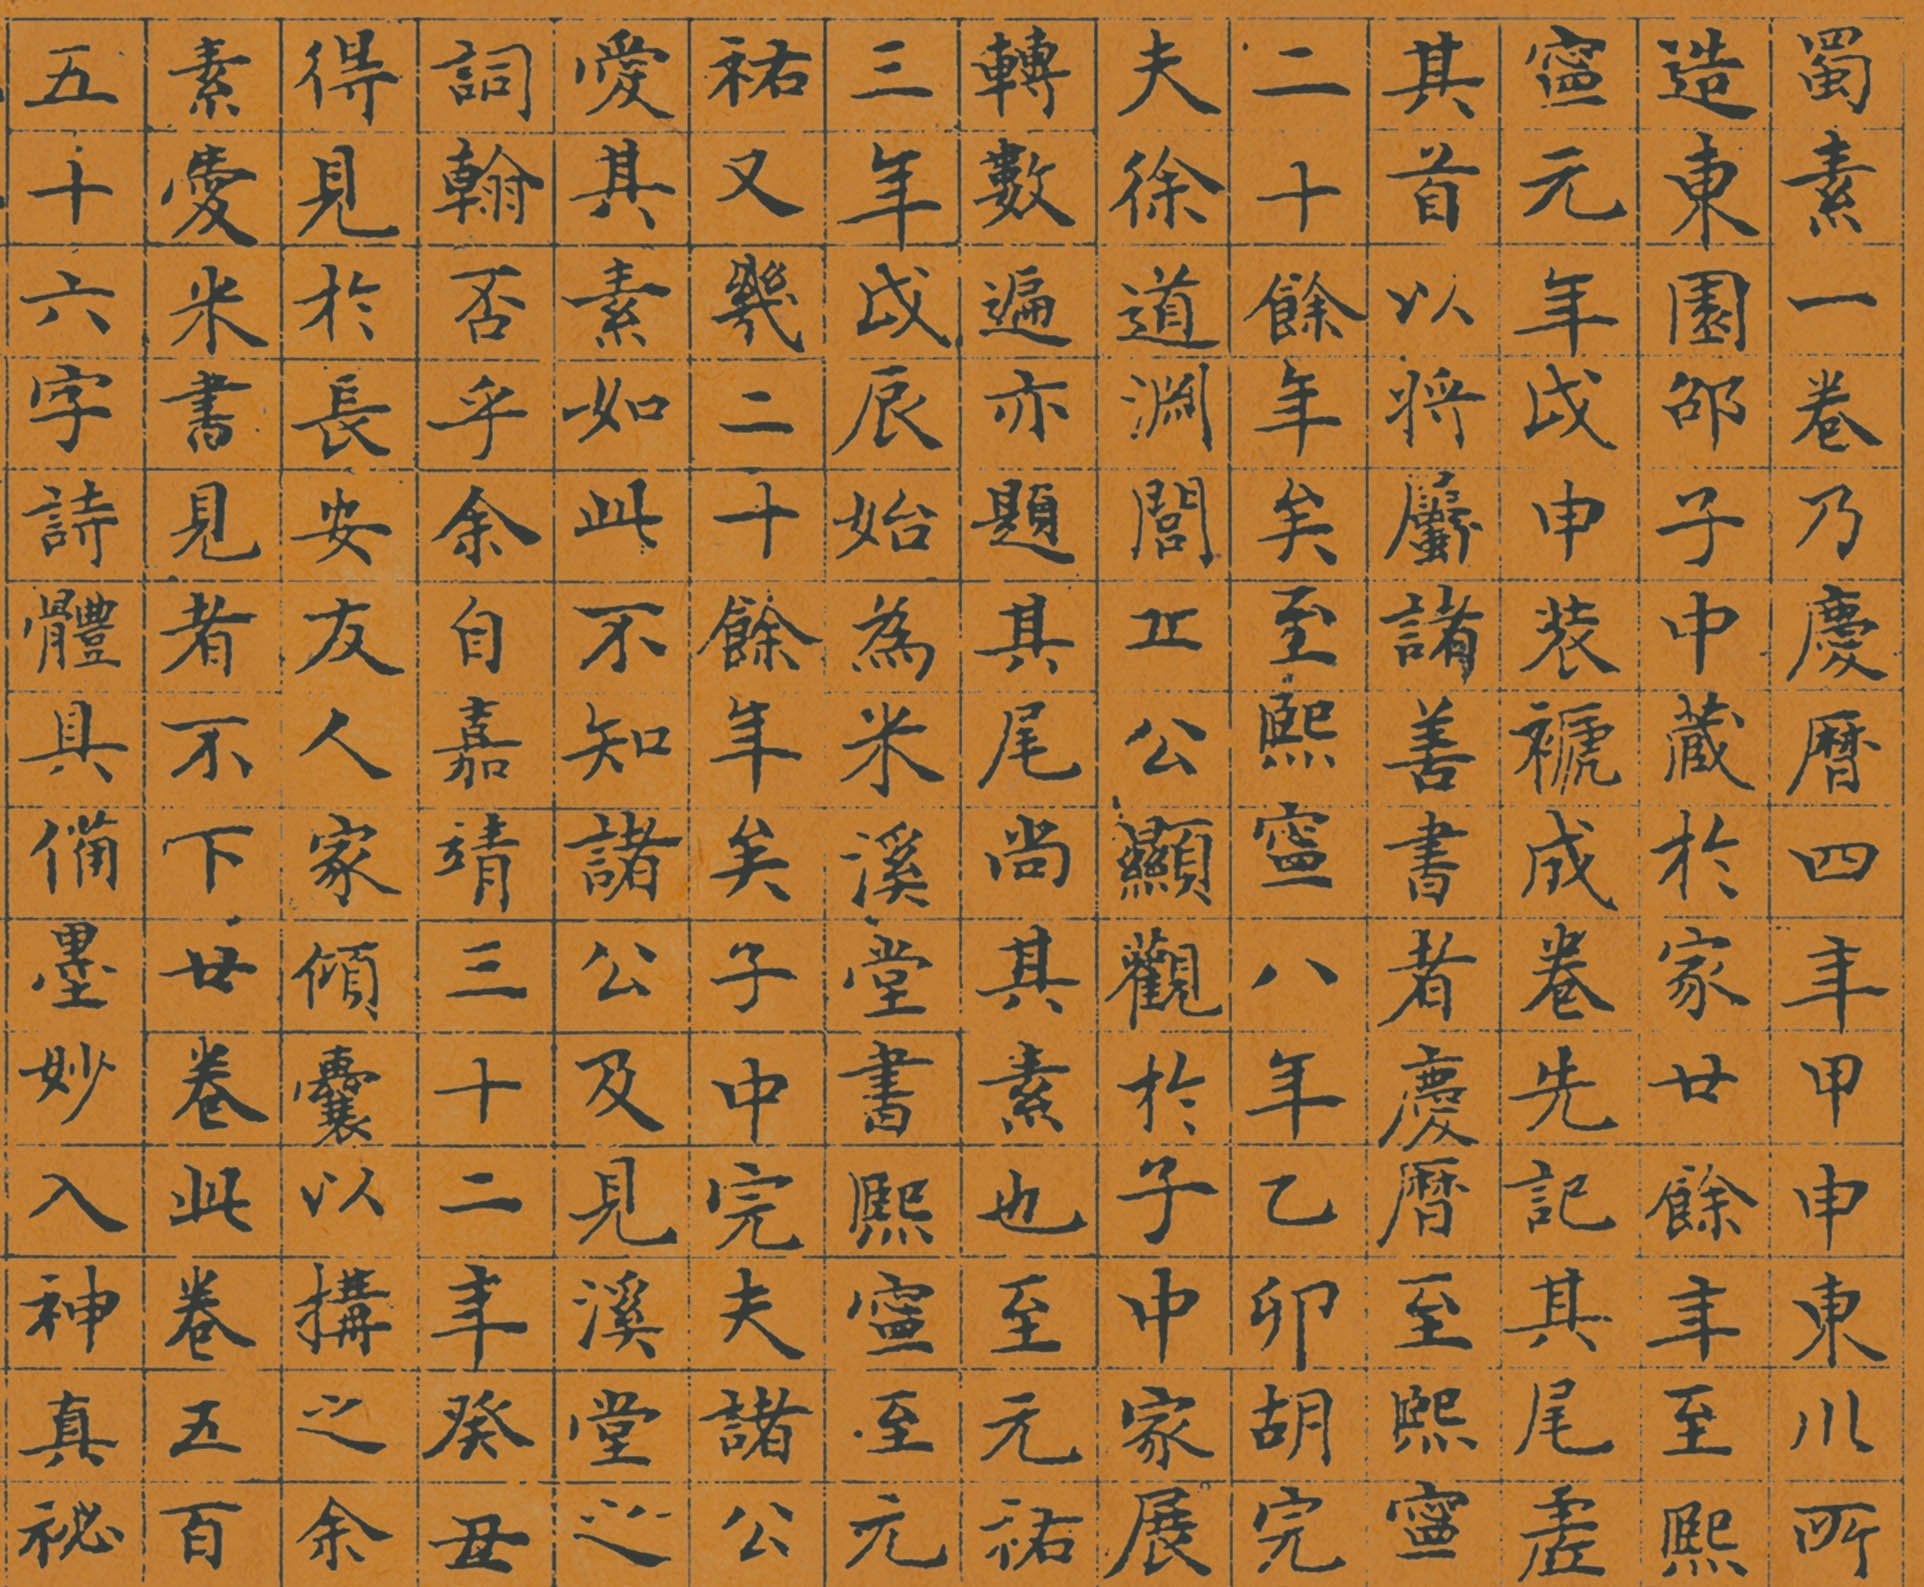 蜀素一卷乃慶曆四年甲申東川所
造東園邵子中藏於家廿餘年至熙
寧元年戊申裝褫成卷先記其尾虛
其首以將屬諸善書者慶曆至熙寧
二十餘年矣至熙寧八年乙卯胡完
夫徐道淵閭丘公顯觀於子中家展
轉數遍亦題其尾尚其素也至元祐
三年戊辰始為米溪堂書熙寧至元
祐又幾二十餘年矣子中完夫諸公
愛其素如此不知諸公及見溪堂之
詞翰否乎余自嘉靖三十二年癸丑
得見於長安友人家傾囊以搆之余
素愛米書見者不下廿卷此卷五百
五十六字詩體具備墨妙入神真祕